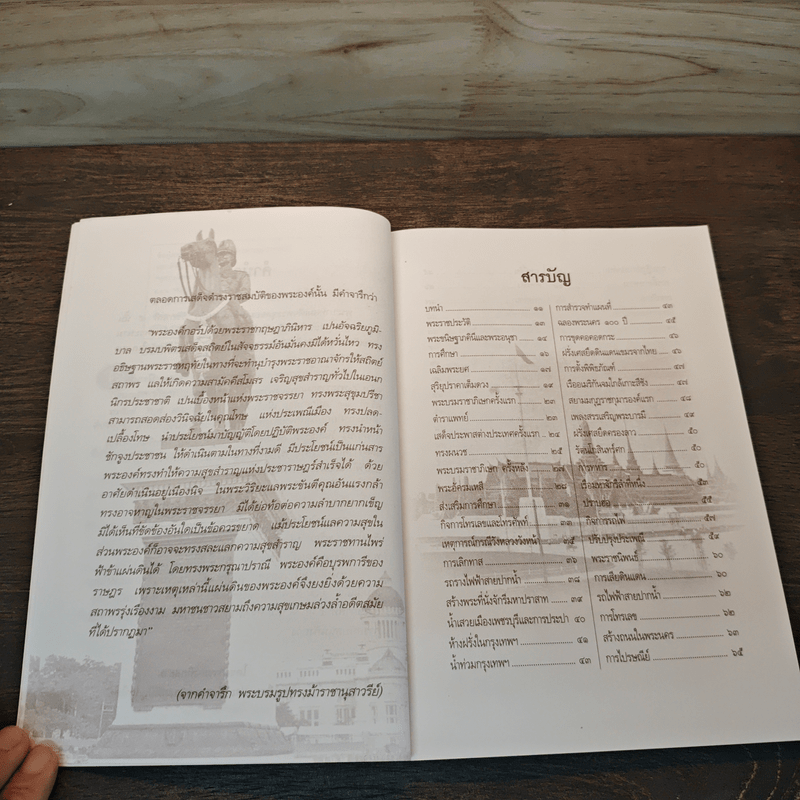 ตลอดการเสด็จดำรงราชสมบัติของพระองค์นั้น มีคำจารึกว่า
"พระองค์กอร์ปด้วยพระราชกฤษฎาภินิหาร เปนอัจฉริยภูมิ-
บาล บรมบพิตรเสด็จสถิตย์ในสัจธรรม์อันมั่นคงมิได้หวั่นไหว ทรง
อธิษฐานพระราชหฤทัยในทางที่จะทำนุบำรุงพระราชอาณาจักรให้สถิตย์
สถาพร แลให้เกิดความสามัคคีสโมสร เจริญสุขสำราญทั่วไปในเอนก
นิกรประชาชาติ เปนเบื้องหน้าแห่งพระราชจรรยา ทรงพระสุขุมปรีชา
สามารถสอดส่องวินิจฉัยในคุณโทษ แห่งประเพณีเมือง ทรงปลด-
เปลื้องโทษ นำประโยชน์มาบัญญัติโดยปฏิบัติพระองค์ ทรงนำหน้า
ชักจูงประชาชน ให้ดำเนินตามในทางที่งามดี มีประโยชน์เป็นแก่นสาร
พระองค์ทรงทำให้ความสุขสำราญแห่งประชาราษฎร์สำเร็จได้ ด้วย
อาศัยดำเนินอยู่เนืองนิจ ในพระวิริยะแลพระขันตีคุณอันแรงกล้า
ทรงอาจหาญในพระราชจรรยา มิได้ย่อท้อต่อความลำบากยากเข็ญ
มิได้เห็นที่ขัดข้องอันใดเป็นข้อควรขยาด แม้ประโยชน์แลความสุขใน
ส่วนพระองค์ก็อาจจะทรงสละแลกความสุขสำราญ พระราชทานไพร่
ฟ้าข้าแผ่นดินได้ โดยทรงพระกรุณาปรานี พระองค์คือบุรพการีของ
ราษฎร เพราะเหตุเหล่านี้แผ่นดินของพระองค์จึงยงยิ่งด้วยความ
สถาพรรุ่งเรืองงาม มหาชนชาวสยามถึงความสุขเกษมล่วงล้ำอดีตสมัย
ที่ได้ปรากฏมา"
(จากคำจารึก พระบรมรูปทรงม้าราชานุสาวรีย์)
สารบัญ
บทนำ ๑๑
พระราชประวัติ ๑๓
พระชนิษฐภคินีและพระอนุชา ๑๔
การศึกษา ๑๖
เฉลิมพระยศ ๑๗
สุริยุปราคาเต็มดวง ๑๙
พระบรมราชาภิเษกครั้งแรก ๒๓
ตำราแพทย์ ๒๓
เสด็จประพาสต่างประเทศครั้งแรก ๒๔
ทรงผนวช ๒๕
พระบรมราชาภิเษก ครั้งหลัง ๒๗
พระอัครมเหสี ๒๘
ส่งเสริมการศึกษา ๓๑
กิจการโทรเลขและโทรศัพท์ ๓๑
เหตุการณ์กรณีวังหลวงวังหน้า ๓๕
การเลิกทาส ๓๖
รถรางไฟฟ้าสายปากน้ำ ๓๘
สร้างพระที่นั่งจักรีมหาปราสาท ๓๙
น้ำเสวยเมืองเพชรบุรีและการประปา ๔๐
ห้างฝรั่งในกรุงเทพฯ ๔๑
น้ำท่วมกรุงเทพฯ ๔๓
การสำรวจทำแผนที่ ๔๓
ฉลองพระนคร ๑๐๐ ปี ๔๕
การขุดคอคอดกระ ๔๖
ฝรั่งเศสยึดดินแดนเขมรจากไทย ๔๖
การตั้งพิพิธภัณฑ์ ๔๗
เรืออเมริกันจมใกล้เกาะสีชัง ๔๗
สยามมกุฎราชกุมารองค์แรก ๔๘
เพลงสรรเสริญพระบารมี ๔๙
ฝรั่งเศสยึดครองลาว ๔๙
รัตนโกสินทร์ศก ๕๐
การทหาร ๕๐
เรือมหาจักรีลำที่หนึ่ง ๕๐
ปราบฮ่อ ๕๕
กิจการรถไฟ ๕๗
ปรับปรุงประเพณี ๕๙
พระราชนิพนธ์ ๖๐
การเสียดินแดน ๖๐
รถไฟฟ้าสายปากน้ำ ๖๒
การโทรเลข ๖๒
สร้างถนนในพระนคร ๖๓
การไปรษณีย์ ๖๕